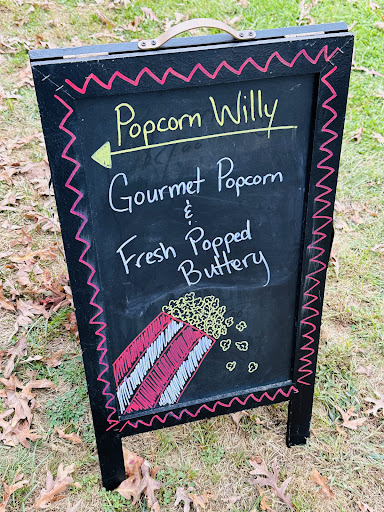 Popcorn Willy
Gourmet Popcorn
&
Fresh Popped
Buttery